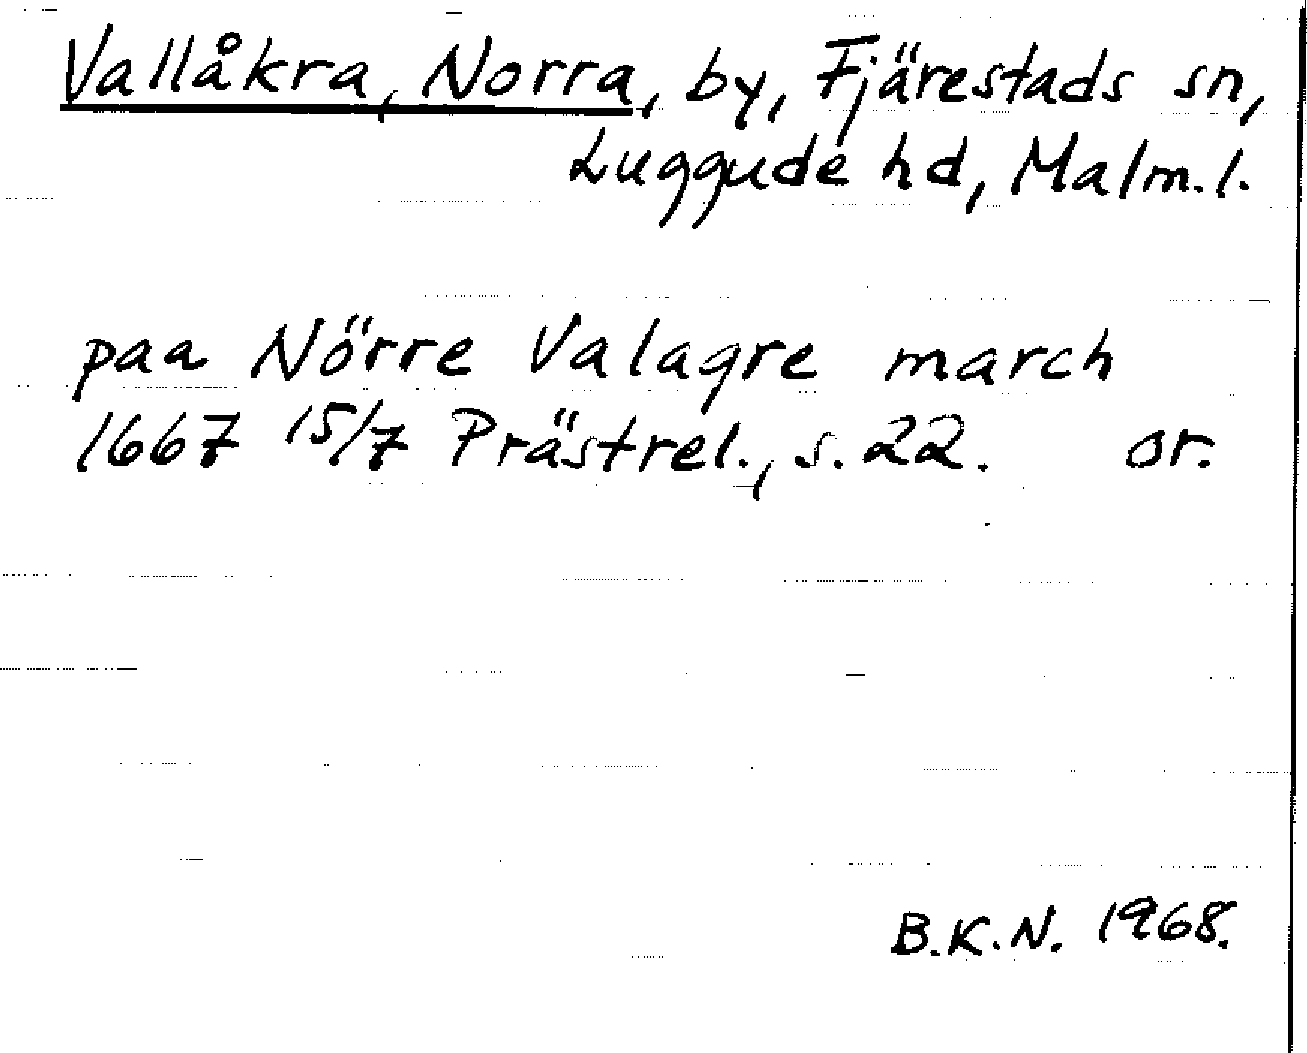 Vallåkra, Norra, by, Fjärestads sn,
Luggude hd, Malm. l.
paa Nörre Valagre march
1667 15/7 Prästrel., s. 22. or.
B.K.N. 1968.